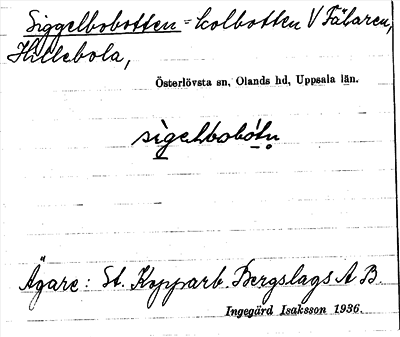 Siggelbobotten = kolbotten V Fäbaren,
Hillebola,
Österlövsta sn, Olands hd, Uppsala län.
sigelbobótn
Ägare: St. Kopparb. Bergslags A B.
Ingegärd Isaksson 1936.